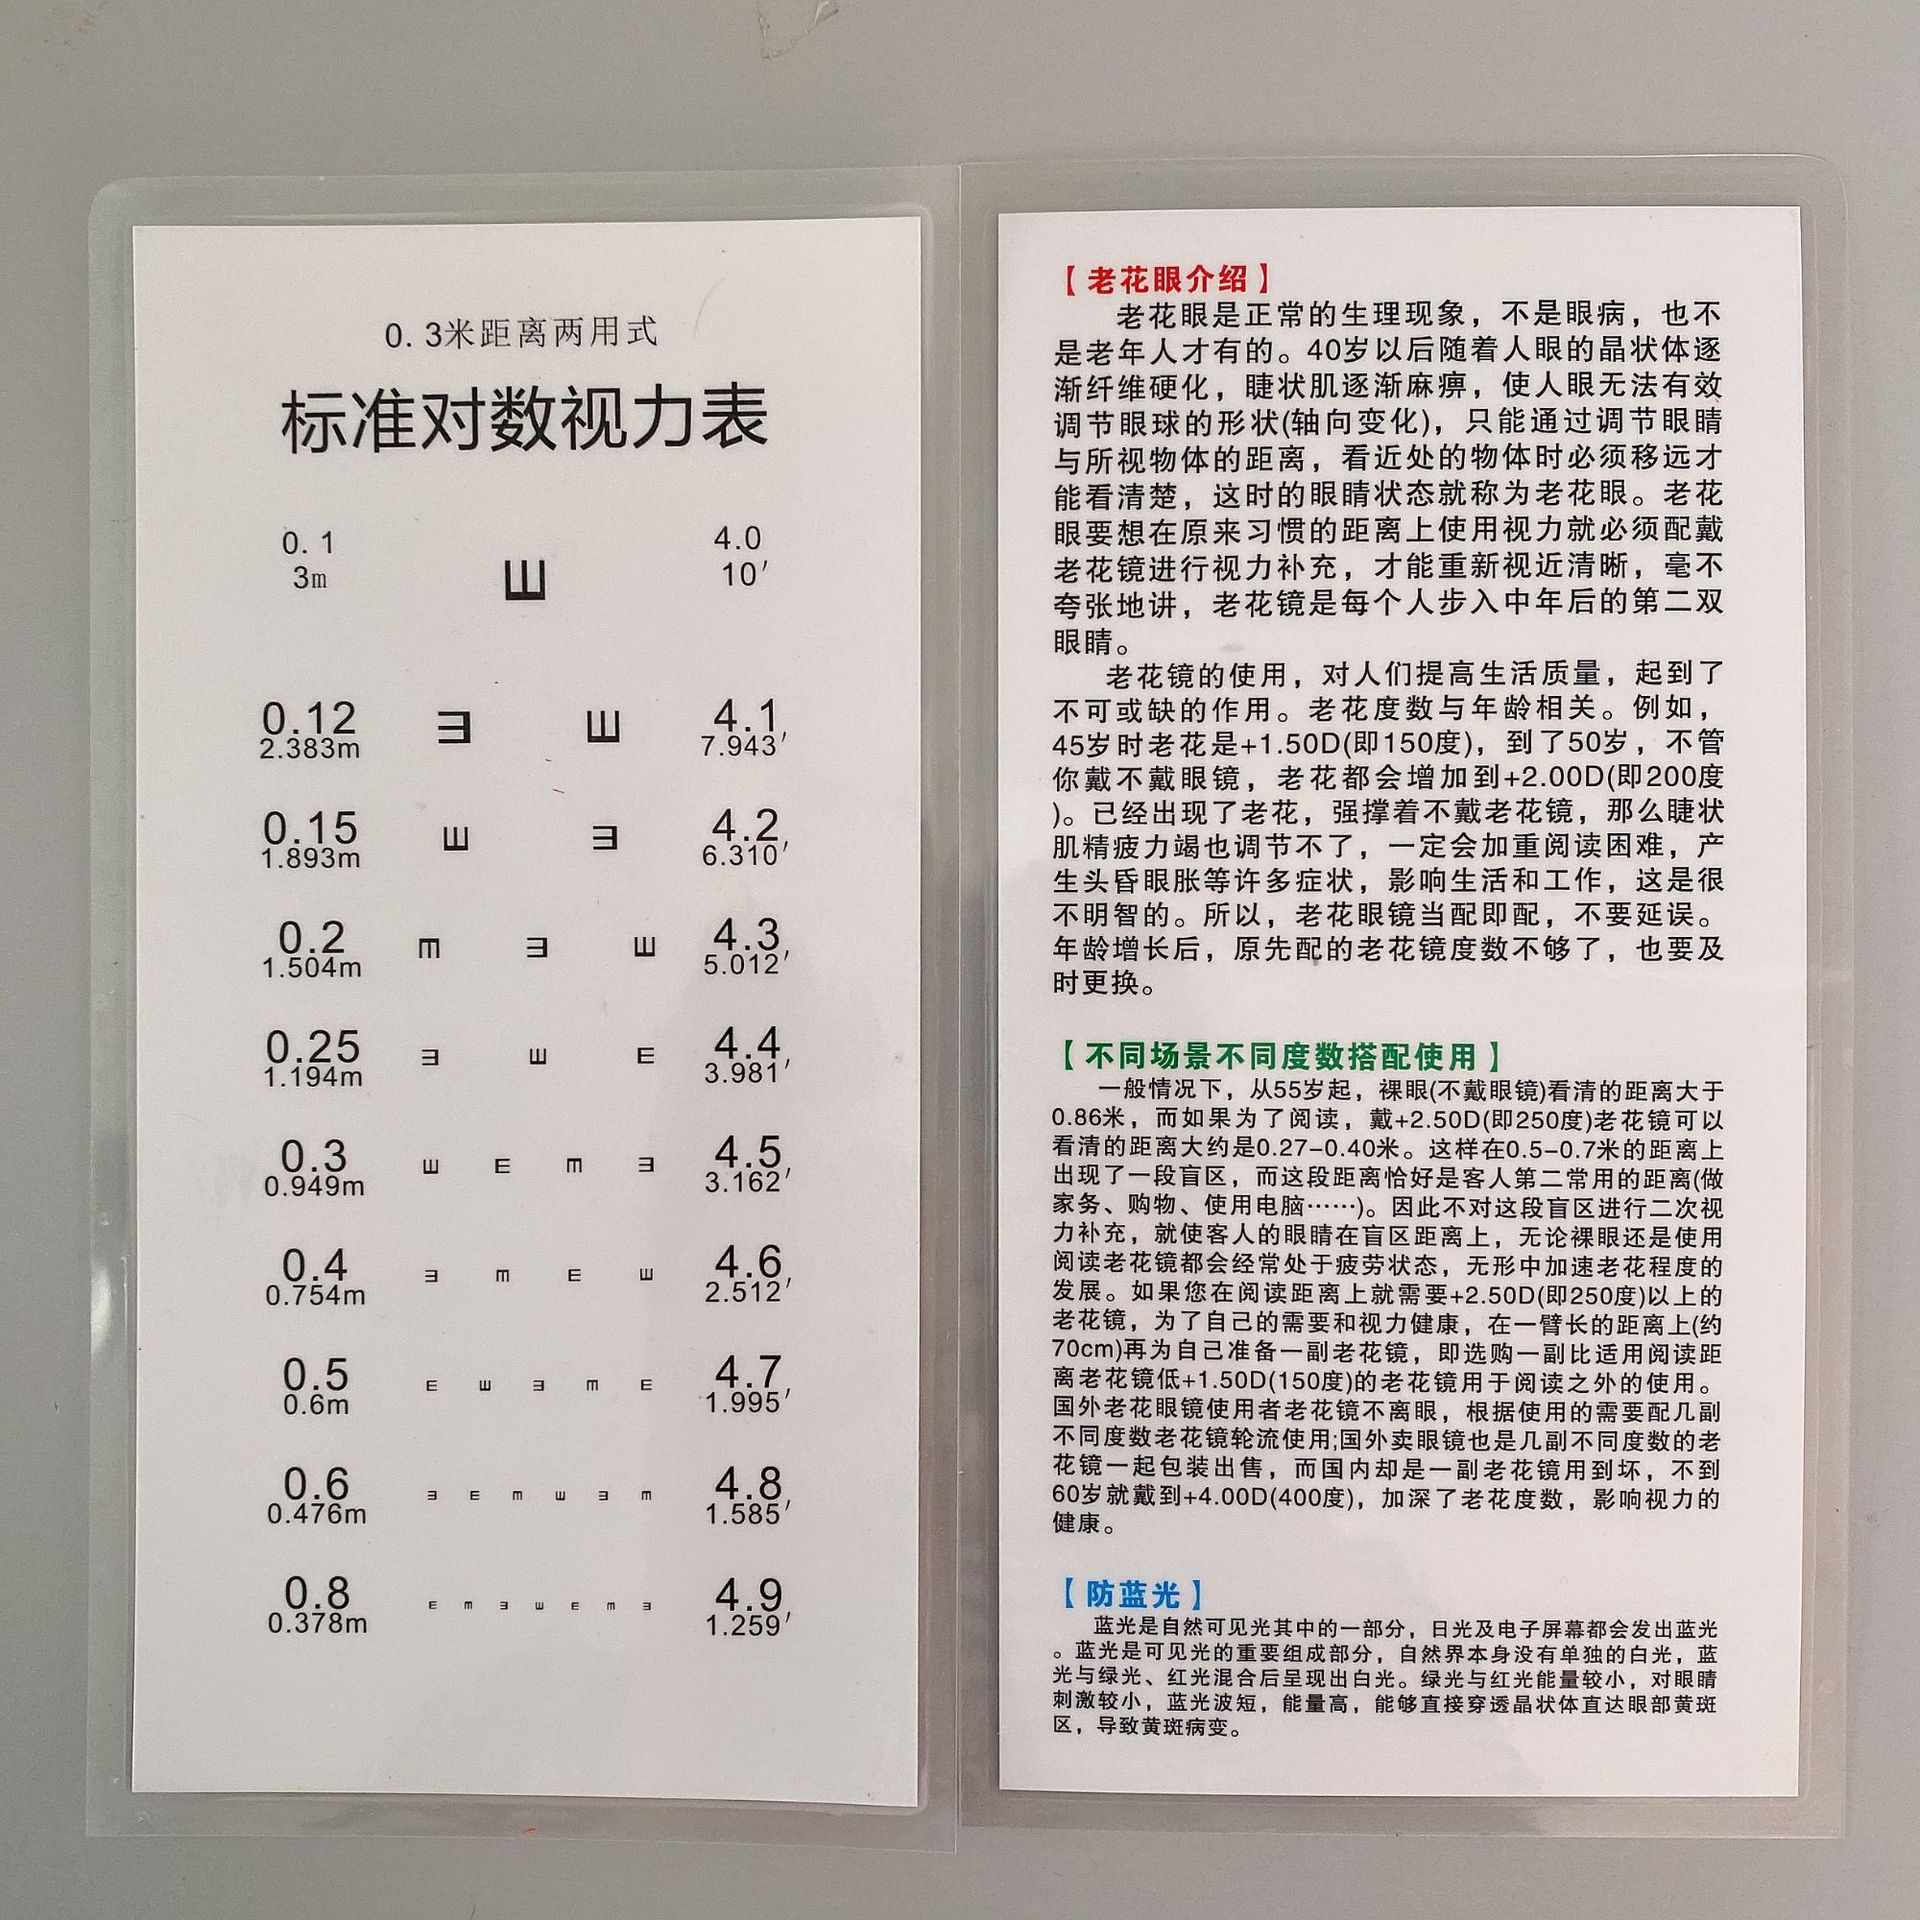 0.3米距离两用式
标准对数视力表
0.1 4.0
3m 10′
0.12 4.1
2.383m 7.943′
0.15 4.2
1.893m 6.310′
0.2 4.3
1.504m 5.012′
0.25 4.4
1.194m 3.981′
0.3 4.5
0.949m 3.162′
0.4 4.6
0.754m 2.512′
0.5 4.7
0.6m 1.995′
0.6 4.8
0.476m 1.585′
0.8 4.9
0.378m 1.259′
【老花眼介绍】
老花眼是正常的生理现象，不是眼病，也不
是老年人才有的。40岁以后随着人眼的晶状体逐
渐纤维硬化，睫状肌逐渐麻痹，使人眼无法有效
调节眼球的形状(轴向变化)，只能通过调节眼睛
与所视物体的距离，看近处的物体时必须移远才
能看清楚，这时的眼睛状态就称为老花眼。老花
眼要想在原来习惯的距离上使用视力就必须配戴
老花镜进行视力补充，才能重新视近清晰，毫不
夸张地讲，老花镜是每个人步入中年后的第二双
眼睛。
老花镜的使用，对人们提高生活质量，起到了
不可或缺的作用。老花度数与年龄相关。例如，
45岁时老花是+1.50D(即150度)，到了50岁，不管
你戴不戴眼镜，老花都会增加到+2.00D(即200度
)。已经出现了老花，强撑着不戴老花镜，那么睫状
肌精疲力竭也调节不了，一定会加重阅读困难，产
生头昏眼胀等许多症状，影响生活和工作，这是很
不明智的。所以，老花眼镜当配即配，不要延误。
年龄增长后，原先配的老花镜度数不够了，也要及
时更换。
【不同场景不同度数搭配使用】
一般情况下，从55岁起，裸眼(不戴眼镜)看清的距离大于
0.86米，而如果为了阅读，戴+2.50D(即250度)老花镜可以
看清的距离大约是0.27-0.40米。这样在0.5-0.7米的距离上
出现了一段盲区，而这段距离恰好是客人第二常用的距离(做
家务、购物、使用电脑……)。因此不对这段盲区进行二次视
力补充，就使客人的眼睛在盲区距离上，无论裸眼还是使用
阅读老花镜都会经常处于疲劳状态，无形中加速老花程度的
发展。如果您在阅读距离上就需要+2.50D(即250度)以上的
老花镜，为了自己的需要和视力健康，在一臂长的距离上(约
70cm)再为自己准备一副老花镜，即选购一副比适用阅读距
离老花镜低+1.50D(150度)的老花镜用于阅读之外的使用。
国外老花眼镜使用者老花镜不离眼，根据使用的需要配几副
不同度数老花镜轮流使用;国外卖眼镜也是几副不同度数的老
花镜一起包装出售，而国内却是一副老花镜用到坏，不到
60岁就戴到+4.00D(400度)，加深了老花度数，影响视力的
健康。
【防蓝光】
蓝光是自然可见光其中的一部分，日光及电子屏幕都会发出蓝光
。蓝光是可见光的重要组成部分，自然界本身没有单独的白光，蓝
光与绿光、红光混合后呈现出白光。绿光与红光能量较小，对眼睛
刺激较小，蓝光波短，能量高，能够直接穿透晶状体直达眼部黄斑
区，导致黄斑病变。